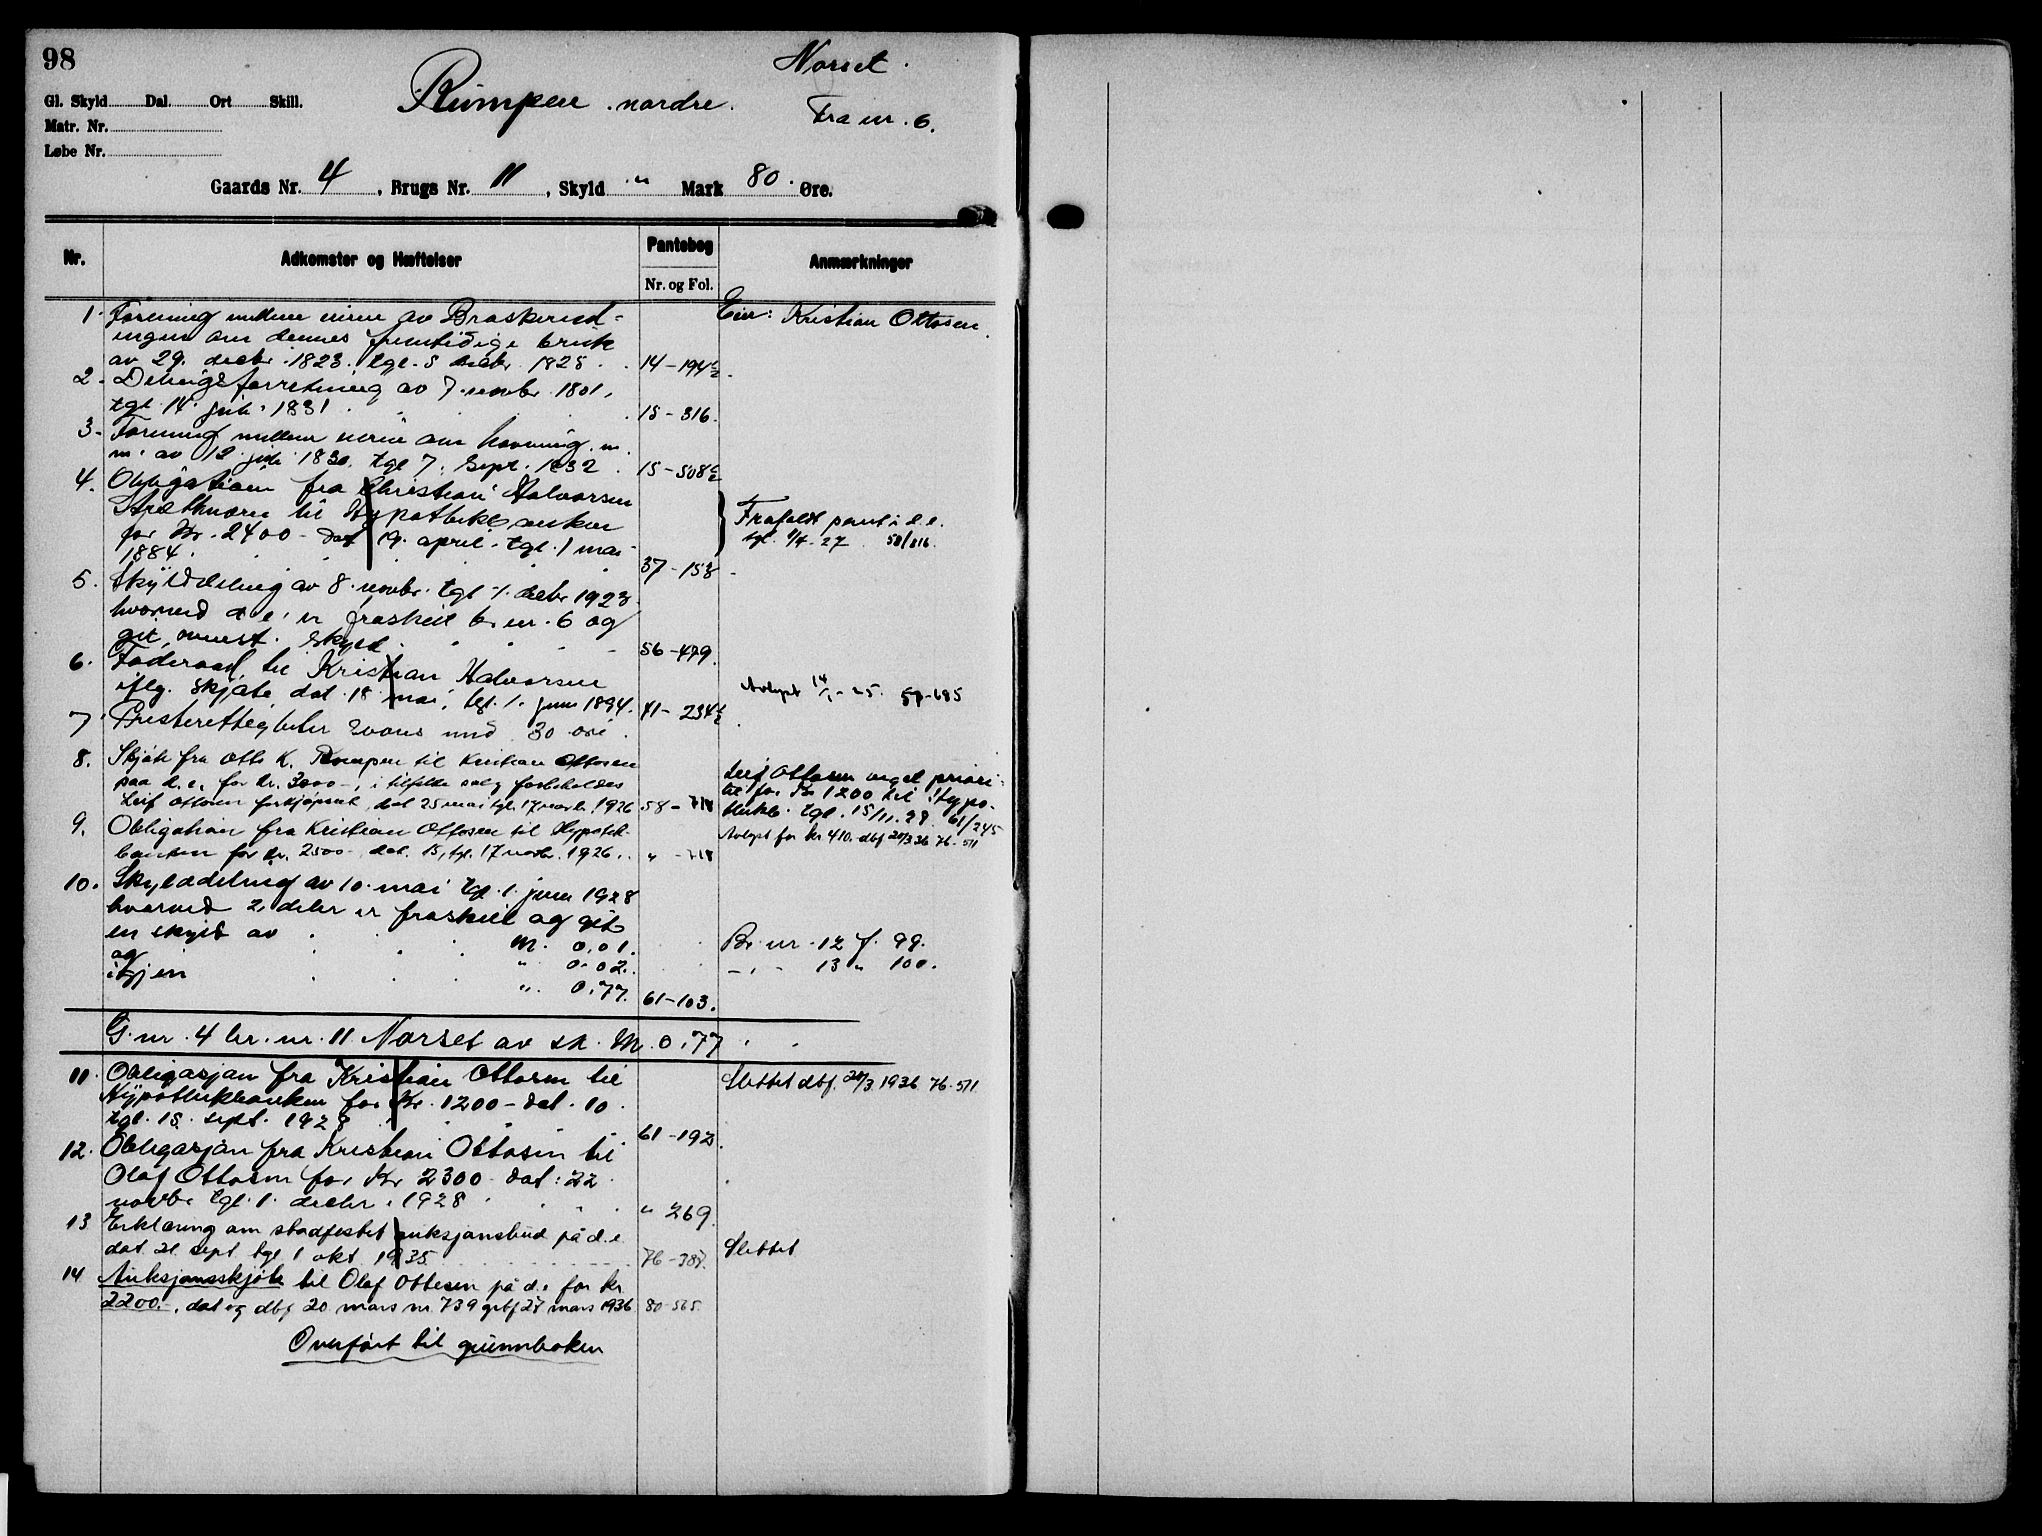 98
Norset.
Gl. Skyld Dal. Ort Skill.
Rumpen nordre.
Fra nr. 6.
Matr. Nr.
Løbe Nr.
Gaards Nr. 4, Brugs Nr. 11, Skyld " Mark 80. Øre.
Nr. Adkomster og Hæftelser Pantebog Anmærkninger
Nr. og Fol.
1. Forening mellem eierne av Braskerud- Eier: Kristian Ottosen.
engen om dennes fremtidige bruk
av 29. decbr. 1823. tgl. 5 decbr. 1825. 14-194
2. Delingsforretning av 7. novbr. 1801,
tgl. 14. juli 1831 15-316.
3. Forening mellem om havning m.
m. av 12. juli 1830. tgl. 7. Sept. 1832. 15-508
4. Obligation fra Christian Halvorsen
til Hypothekbanken Frafaldt pant i d.e.
for Kr. 2400 - dat 19. april. tgl. 1 mai tgl. 1/4-27 58/816.
1884. 37-158
5. Skylddeling av 8. novbr. tgl. 1. decbr 1923
hvorved d.e. er fraskilt br. nr. 6 og
git ovenst. skyld 56-479.
6. Føderaad til Kristian Halvorsen
iflg. skjøte dat. 18 mai, tgl. 1. juni 1894. 41-234 Avlyst 14/1-25. 57-685
7. Presterettigheter svares med 30 øre.
8. Skjøte fra Otto K. Rumpen til Kristian Ottosen
paa d.e. for kr. 3000-, i tilfelde salg forbeholdes Leif Ottosen veget priori-
Leif Ottosen forkjøpsret, dat 25 mai tgl. 17 novbr. 1926 58-718 tet for Kr 1200 til Hypo-
thekb. tgl. 15/11.28. 61/245
9. Obligation fra Kristian Ottosen til Hypotek- Avlyst for kr 410.- dbf 20/3 36 76-511
banken for kr. 2500-, dat. 15, tgl. 17 novbr. 1926. " -718
10. Skylddeling av 10. mai tgl. 1. juni 1928
hvorved 2 deler er fraskilt og git
en skyld av M. 0.01. Br. nr. 12 f. 99.
og " 0.02. -,- 13 " 100.
igjen " 0.77. 61-103.
G. nr. 4 br. nr. 11 Norset av sk. M. 0.77
11. Obligasjon fra Kristian Ottosen til Slettet dbf. 20/3 1936 76-511
Hypothekbanken for Kr. 1200- dat. 10.
tgl. 15. sept. 1928 61-192.
12. Obligasjon fra Kristian Ottosen til
Olaf Ottosen for Kr 2300 dat. 22.
novbr tgl. 1. decbr. 1928 " 269.
13 Erklæring om stadfestet auksjonsbud på d.e
dat 21. sept tgl 1 okt 1935 76-387. Slettet
14 Auksjonsskjøte til Olaf Ottesen på d.e for kr
2200.-, dat og dbf 20 mars nr. 739 grbf 27 mars 1936 80-565.
Overført til grunnboken